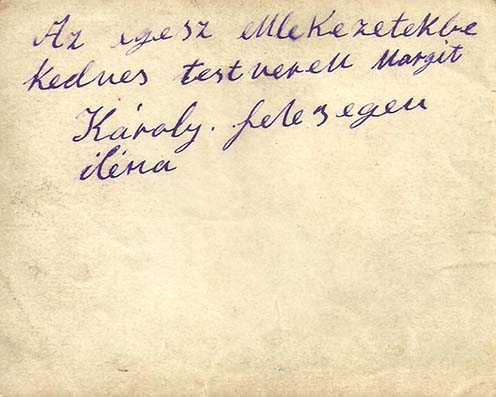 Az igesz emlekezetekbe
kedves testverell Margit
Károly. felezegen
iléna